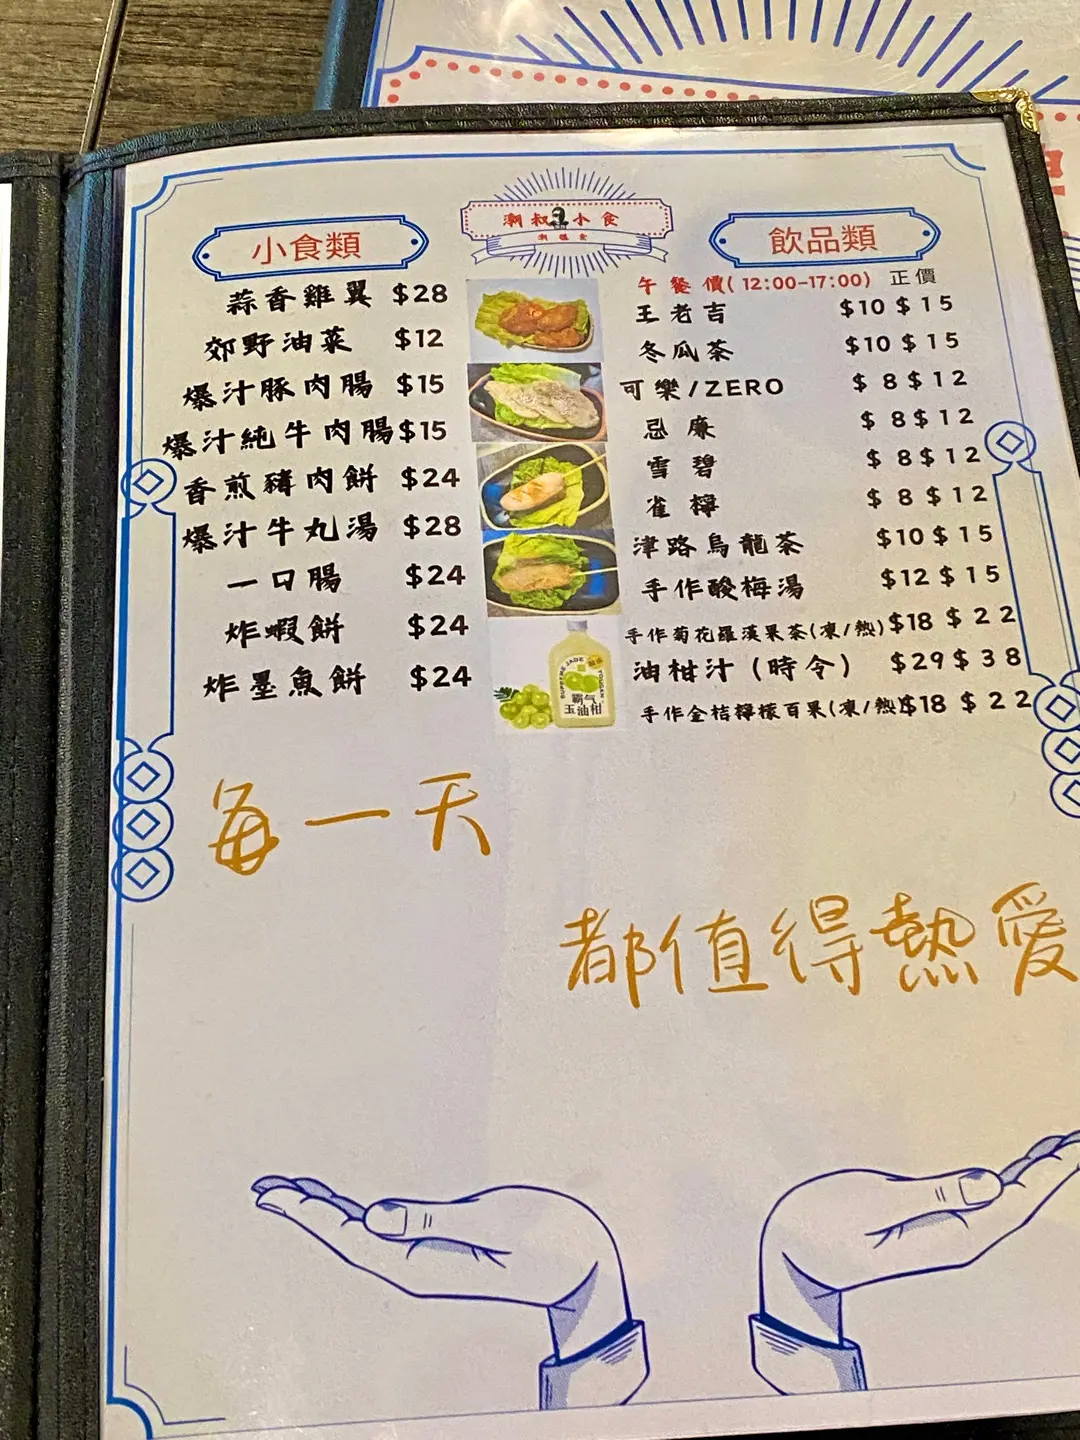 潮叔小食
小食類
蒜香雞翼 $28
郊野油菜 $12
爆汁豚肉腸 $15
爆汁純牛肉腸$15
香煎豬肉餅 $24
爆汁牛丸湯 $28
一口腸 $24
炸蝦餅 $24
炸墨魚餅 $24
飲品類
午餐價(12:00-17:00) 正價
王老吉 $10 $15
冬瓜茶 $10 $15
可樂/ZERO $8 $12
忌廉 $8 $12
雪碧 $8 $12
雀檸 $8 $12
津路烏龍茶 $10 $15
手作酸梅湯 $12 $15
手作菊花羅漢果茶(凍/熱) $18 $22
油柑汁(時令) $29 $38
手作金桔檸檬百果(凍/熱) $18 $22
霸气
玉油柑
每一天
都值得熱愛